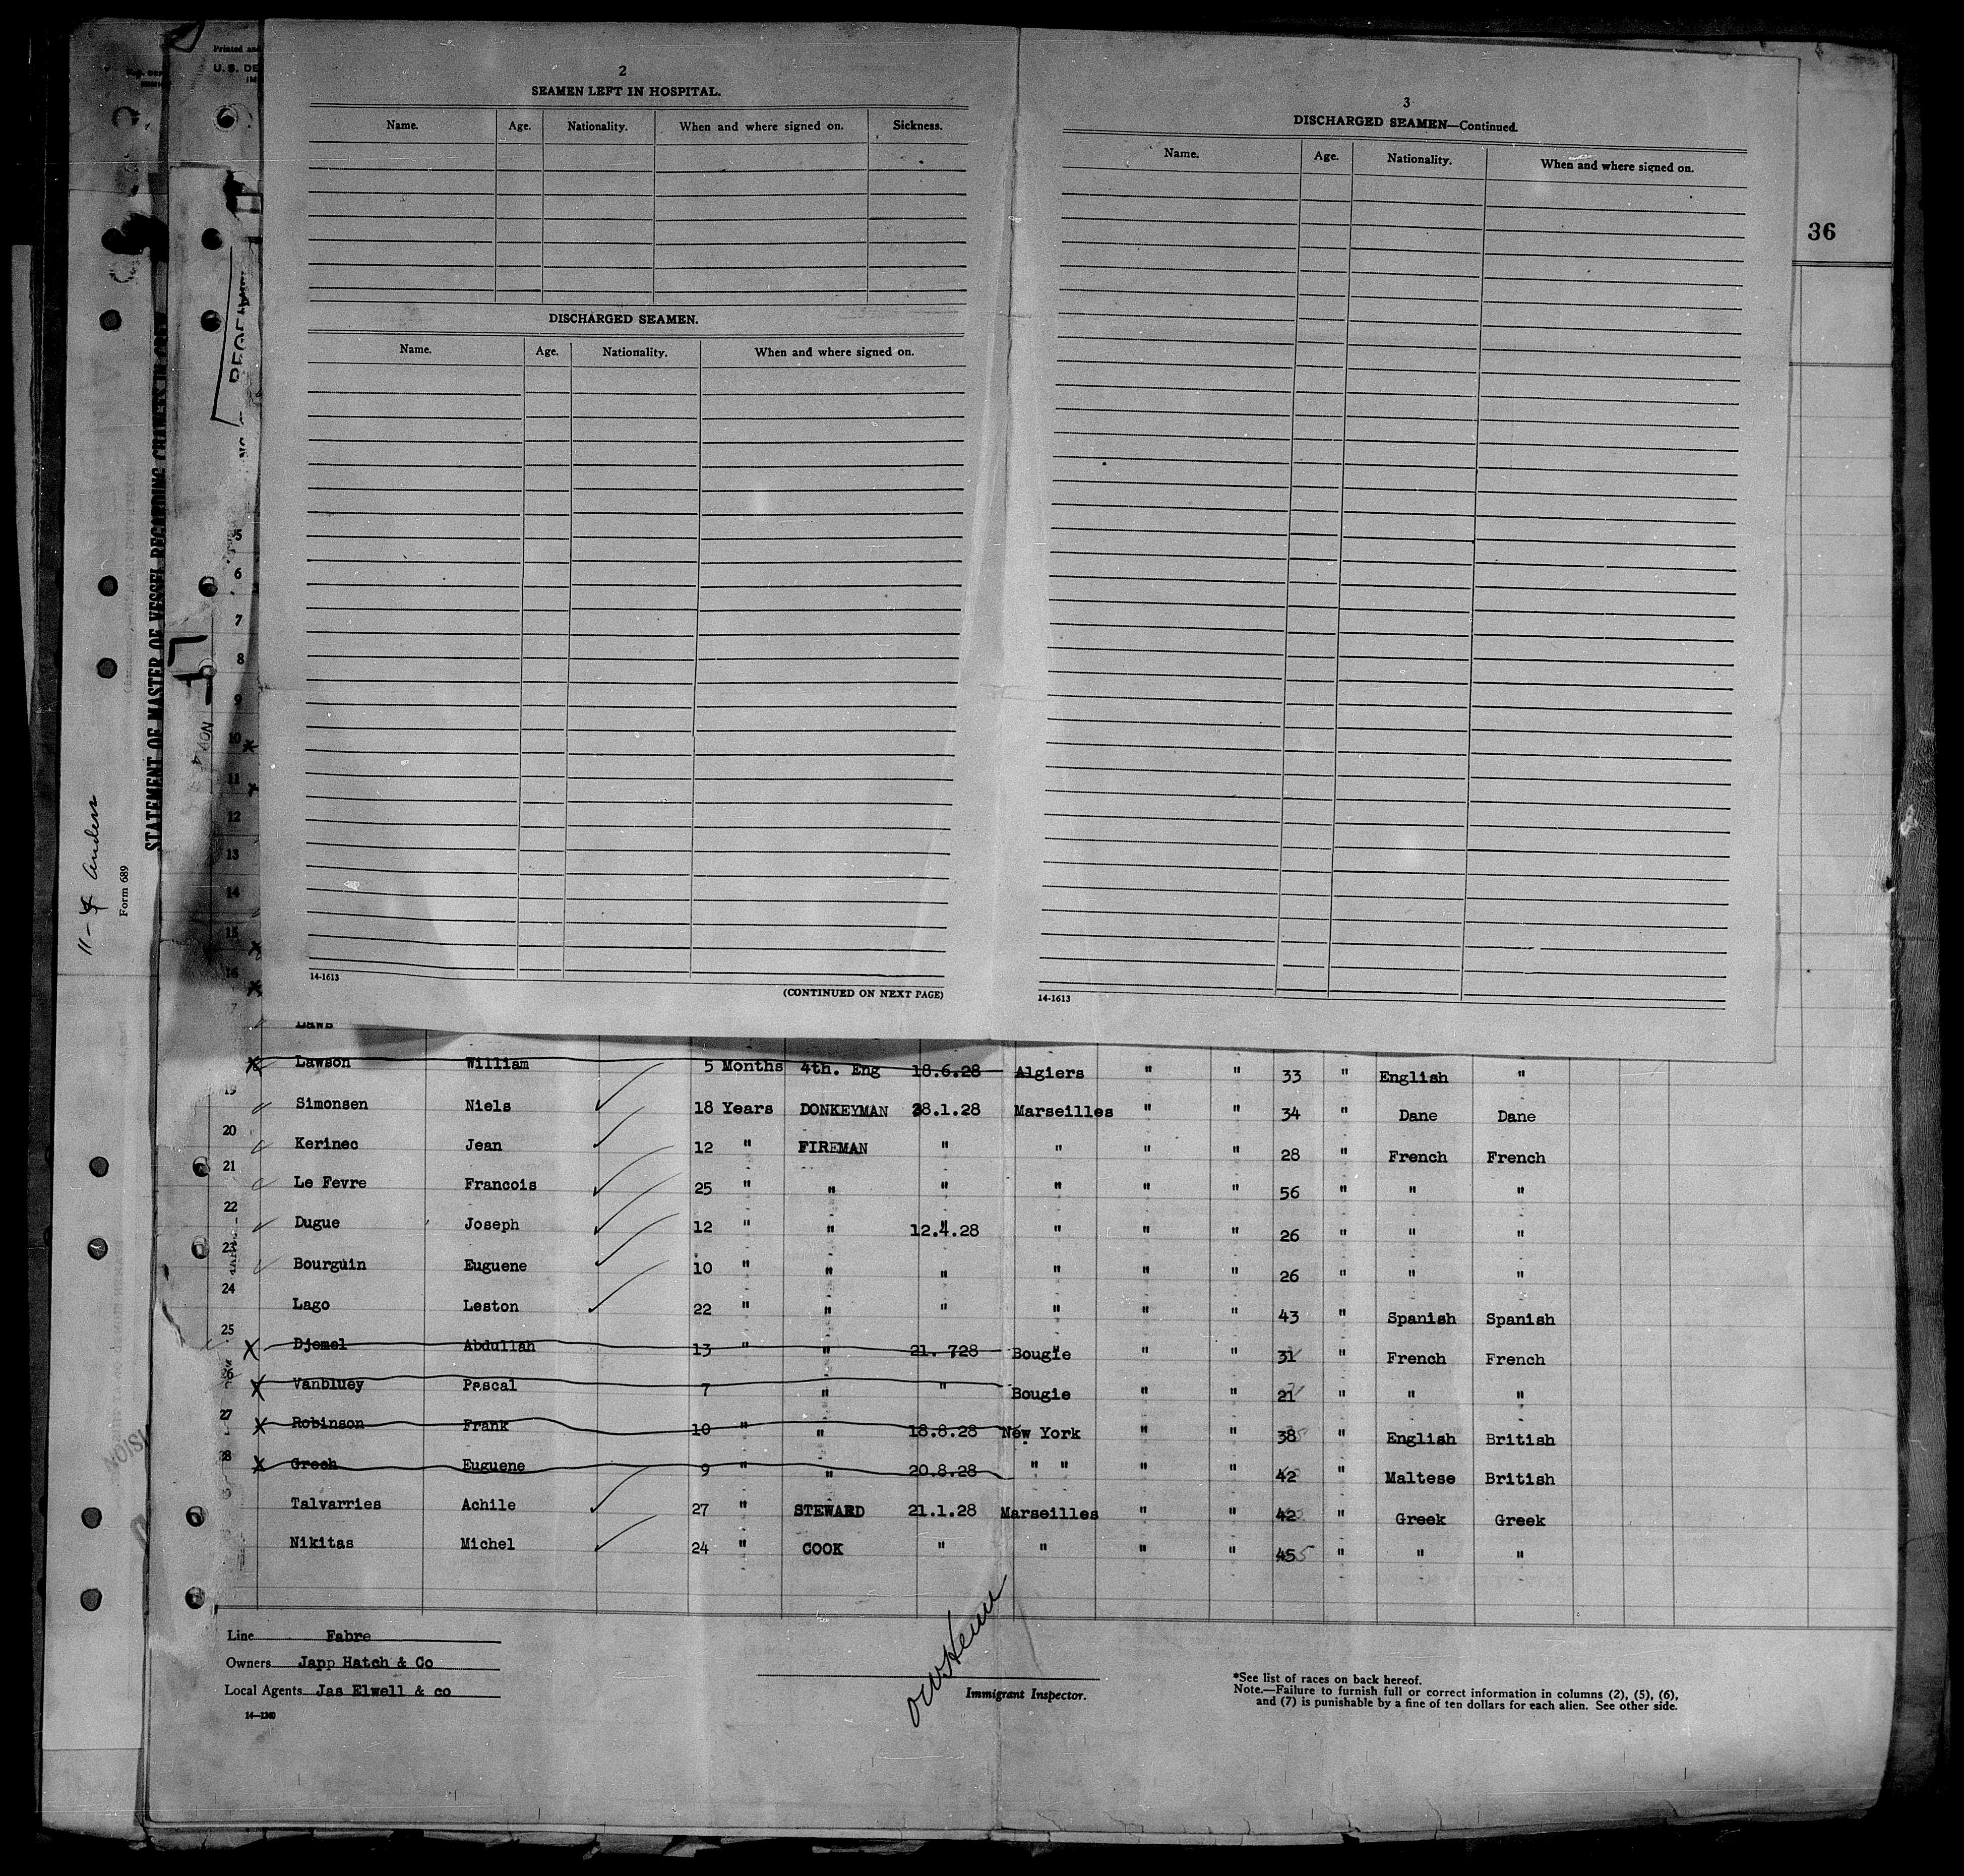 Printed and
U. S. DE
2
SEAMEN LEFT IN HOSPITAL.
Name. Age. Nationality. When and where signed on. Sickness.
DISCHARGED SEAMEN.
Name. Age. Nationality. When and where signed on.
14-1613
(CONTINUED ON NEXT PAGE)
3
DISCHARGED SEAMEN—Continued.
Name. Age. Nationality. When and where signed on.
14-1613
36
STATEMENT OF MASTER OF VESSEL REGARDING CHANGES IN CREW
Form 689
11-4
NOV 4
5
6
7
8
9
10
11
12
13
14
15
16
Laws
Lawson William 5 Months 4th. Eng 18.6.28 Algiers " " 33 " English "
19 Simonsen Niels 18 Years DONKEYMAN 28.1.28 Marseilles " " 34 " Dane Dane
20 Kerinec Jean 12 " FIREMAN " " " " 28 " French French
21 Le Fevre Francois 25 " " " " " " 56 " " "
22 Dugue Joseph 12 " " 12.4.28 " " " 26 " " "
23 Bourguin Euguene 10 " " " " " " 26 " " "
24 Lago Leston 22 " " " " " " 43 " Spanish Spanish
25 Djemel Abdullah 13 " " 21. 728 Bougie " " 31 " French French
26 Vanbluey Pascal 7 " " Bougie " " 21 " " "
27 Robinson Frank 10 " " 18.8.28 New York " " 38 " English British
28 Grech Euguene 9 " " 20.8.28 " " " " 42 " Maltese British
Talvarries Achile 27 " STEWARD 21.1.28 Marseilles " " 42 " Greek Greek
Nikitas Michel 24 " COOK " " " " 45 " " "
Line Fabre
Owners Japp Hatch & Co
Local Agents Jas Elwell & co
14—1240
Immigrant Inspector.
*See list of races on back hereof.
Note.—Failure to furnish full or correct information in columns (2), (5), (6),
and (7) is punishable by a fine of ten dollars for each alien. See other side.